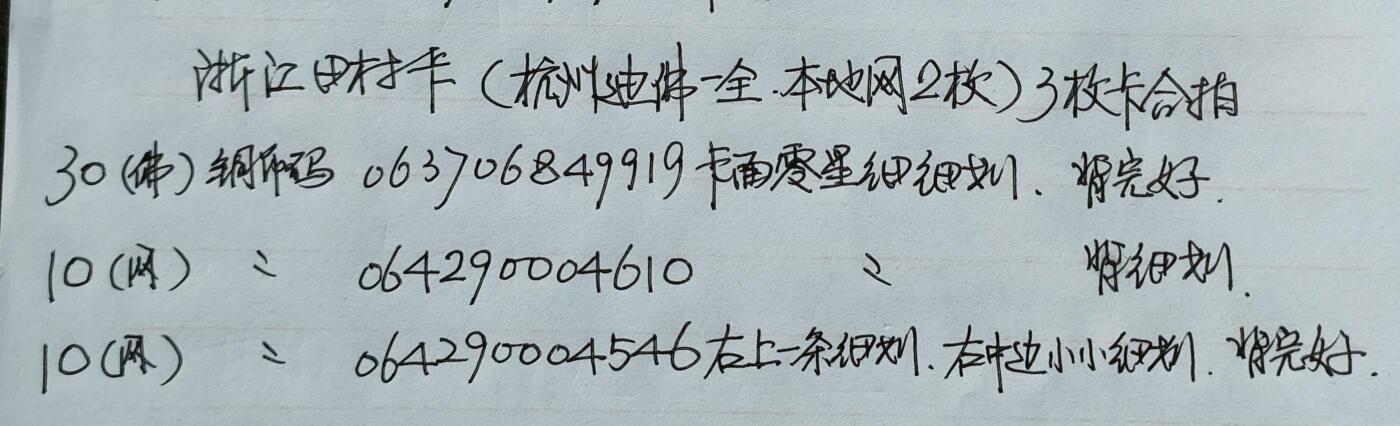 浙江田村卡（杭州迪佛一全.本地网2枚）3枚卡合拍
30（佛）铜印码 063706849919卡面零星细细划. 背完好.
10（网） 〃 064290004610 〃 背细划.
10（网） 〃 064290004546右上一条细划.右中边小小细划. 背完好.